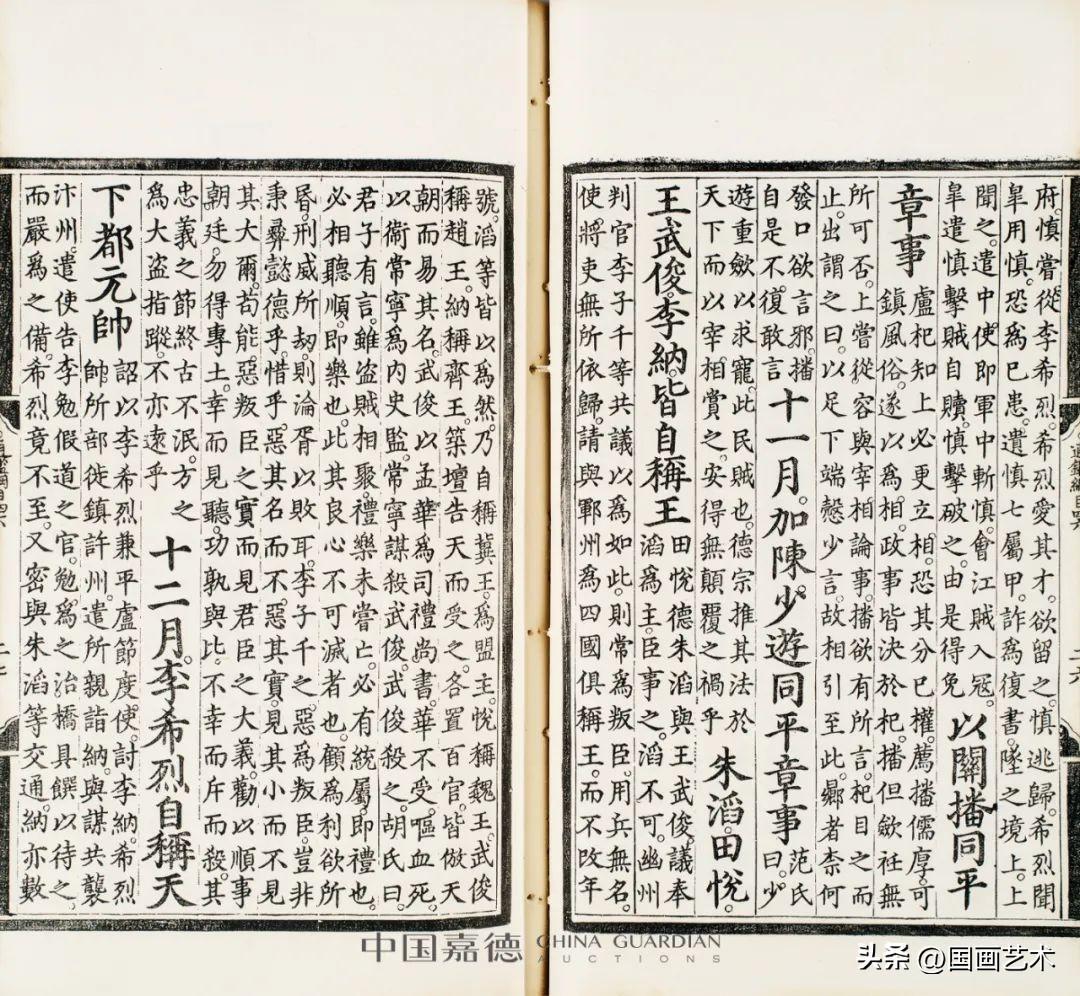 府慎嘗從李希烈。希烈愛其才。欲留之。慎逃歸。希烈聞
皐用慎。恐爲已患。遺慎七屬甲。詐爲復書。墜之境上。上
聞之。遣中使。即軍中斬慎。會江賊入寇。
皐遣慎擊賊自贖。慎擊破之。由是得免
以關播同平
章事
盧杞知上必更立相。恐其分已權。薦播儒厚可
鎮風俗。遂以爲相。政事皆決於杞。播但歛衽無
所可否。上嘗從容與宰相論事。播欲有所言。杞目之而
止。出謂之曰。以足下端慤少言。故相引至此。曏者柰何
發口欲言邪。播
自是不復敢言
十一月。加陳少遊同平章事
范氏
曰。少
遊重歛以求寵。此民賊也。德宗推其法於
天下而以宰相賞之。安得無顛覆之禍乎
朱滔。田悅。
王武俊。李納。皆自稱王
田悅德朱滔與王武俊。議奉
滔爲主。臣事之。滔不可。幽州
判官李子千等共議以爲如此。則常爲叛臣。用兵無名。
使將吏無所依歸。請與鄆州爲四國俱稱王。而不改年
號。滔等皆以爲然。乃自稱冀王。爲盟主。悅稱魏王。武俊
稱趙王。納稱齊王。築壇告天而受之。各置百官。皆倣天
朝而易其名。武俊以孟華爲司禮尚書。華不受。嘔血死。
以衛常寧爲内史監。常寧謀殺武俊。武俊殺之。胡氏曰。
君子有言。雖盗賊相聚。禮樂未嘗亡。必有統屬即禮也。
必相聽順。即樂也。此其良心不可滅者也。顧爲利欲所
昏。刑威所刧。則淪胥以敗耳。李子千之惡爲叛臣。豈非
秉彝懿德乎。惜乎。惡其名而不惡其實。見其小而不見
其大爾。苟能惡叛臣之實。而見君臣之大義。勸以順事
朝廷。勿得專土。幸而見聽。功孰與比。不幸而斥而殺。其
忠義之節。終古不泯。方之
爲大盗指蹤。不亦遠乎
十二月。李希烈自稱天
下都元帥
詔以李希烈兼平盧節度使。討李納。希烈
帥所部徙鎮許州。遣所親詣納。與謀共襲
汴州。遣使告李勉假道之官。勉爲之治橋具饌以待之。
而嚴爲之備。希烈竟不至。又密與朱滔等交通。納亦數
中国嘉德 CHINA GUARDIAN
AUCTIONS
头条 @国画艺术